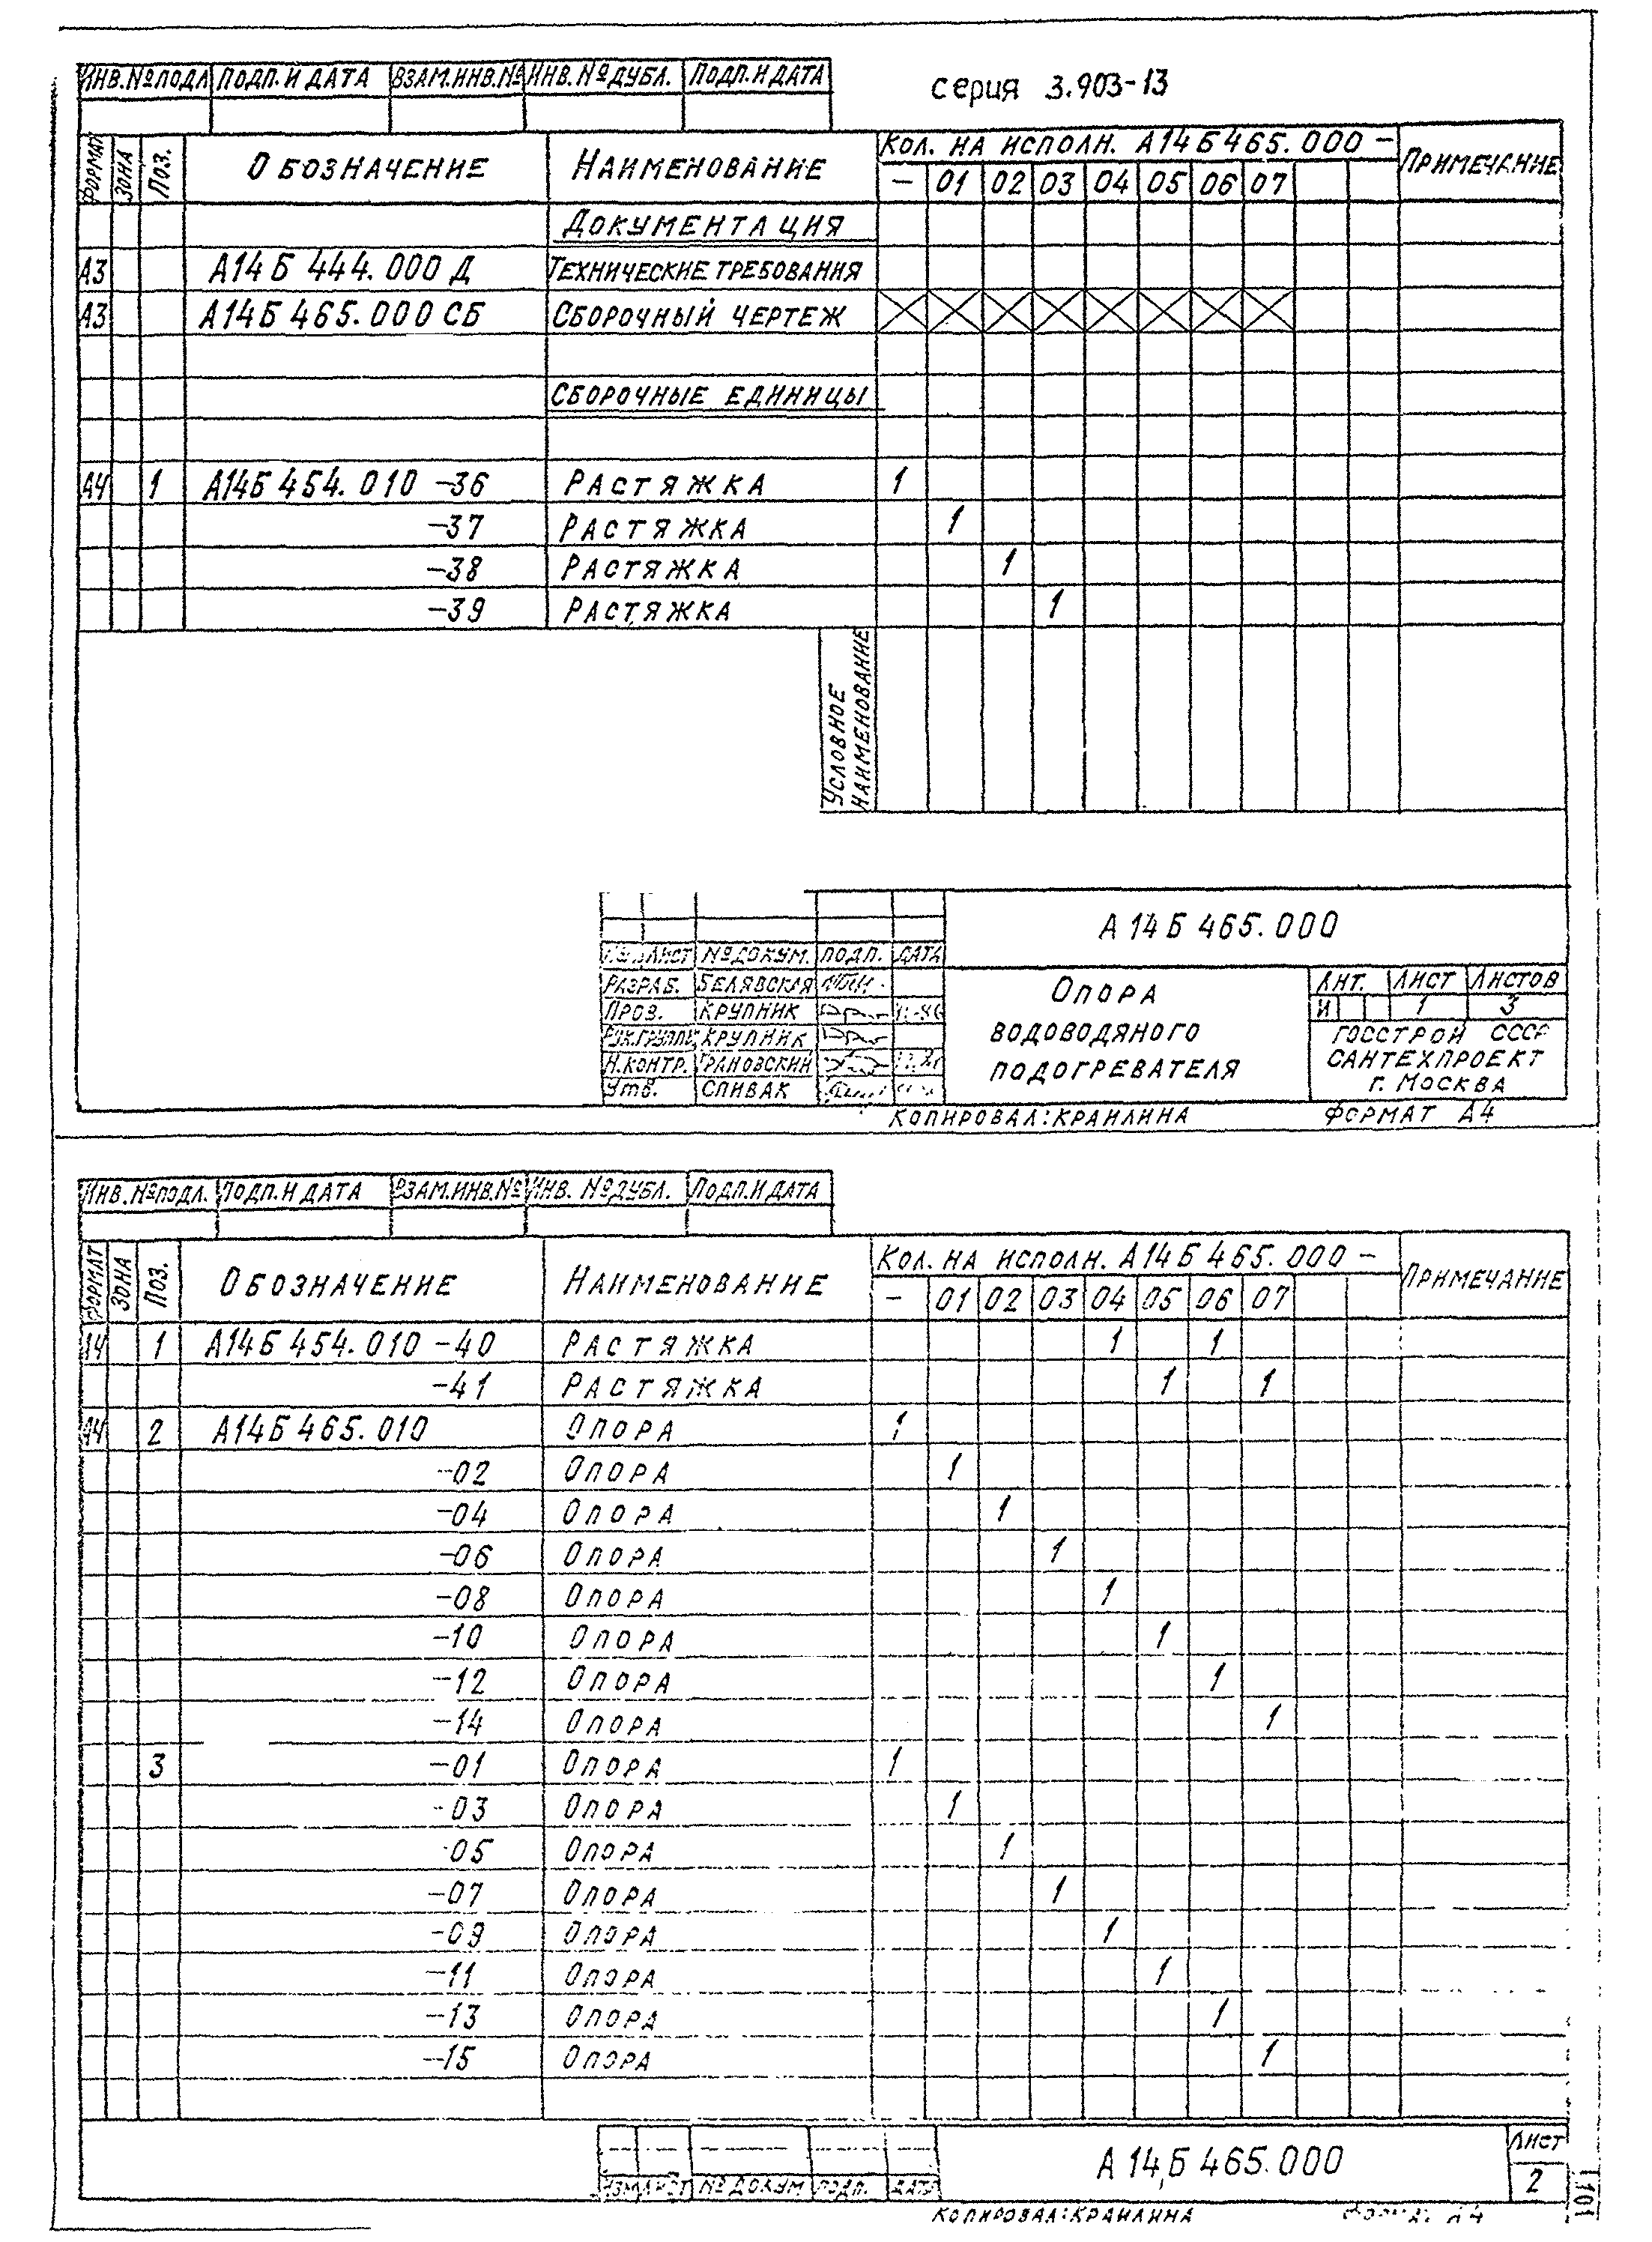 серия 3.903-13
ИНВ.№ПОДЛ ПОДП. И ДАТА ВЗАМ.ИНВ.№ ИНВ.№ДУБЛ. ПОДП.И ДАТА
ФОРМАТ ЗОНА ПОЗ. ОБОЗНАЧЕНИЕ НАИМЕНОВАНИЕ КОЛ. НА ИСПОЛН. А14Б465.000 – ПРИМЕЧАНИЕ
– 01 02 03 04 05 06 07
ДОКУМЕНТАЦИЯ
А3 А14Б 444.000 Д ТЕХНИЧЕСКИЕ ТРЕБОВАНИЯ
А3 А14Б 465.000 СБ СБОРОЧНЫЙ ЧЕРТЕЖ
СБОРОЧНЫЕ ЕДИНИЦЫ
А4 1 А14Б 454.010 –36 РАСТЯЖКА 1
–37 РАСТЯЖКА 1
–38 РАСТЯЖКА 1
–39 РАСТЯЖКА 1
УСЛОВНОЕ
НАИМЕНОВАНИЕ
А 14 Б 465.000
ЛИСТ №ДОКУМ. ПОДП. ДАТА
РАЗРАБ. БЕЛЯВСКАЯ
ПРОВ. КРУПНИК
РУК.ГРУППЫ КРУПНИК
Н.КОНТР. ГРАНОВСКИЙ
УТВ. СПИВАК
ОПОРА
ВОДОВОДЯНОГО
ПОДОГРЕВАТЕЛЯ
ЛИТ. ЛИСТ ЛИСТОВ
И 1 3
ГОССТРОЙ СССР
САНТЕХПРОЕКТ
Г. МОСКВА
КОПИРОВАЛ:КРАИЛИНА ФОРМАТ А4
ИНВ.№ПОДЛ. ПОДП.И ДАТА ВЗАМ.ИНВ.№ ИНВ. №ДУБЛ. ПОДП.И ДАТА
ФОРМАТ ЗОНА ПОЗ. ОБОЗНАЧЕНИЕ НАИМЕНОВАНИЕ КОЛ. НА ИСПОЛН. А14Б 465.000 – ПРИМЕЧАНИЕ
– 01 02 03 04 05 06 07
А4 1 А14Б 454.010 –40 РАСТЯЖКА 1 1
–41 РАСТЯЖКА 1 1
А4 2 А14Б 465.010 ОПОРА 1
–02 ОПОРА 1
–04 ОПОРА 1
–06 ОПОРА 1
–08 ОПОРА 1
–10 ОПОРА 1
–12 ОПОРА 1
–14 ОПОРА 1
3 –01 ОПОРА 1
–03 ОПОРА 1
-05 ОПОРА 1
–07 ОПОРА 1
–09 ОПОРА 1
–11 ОПОРА 1
–13 ОПОРА 1
–15 ОПОРА 1
ИЗМ ЛИСТ № ДОКУМ ПОДП. ДАТА
А 14 Б 465.000
ЛИСТ
2
КОПИРОВАЛ:КРАИЛИНА ФОРМАТ А4
101